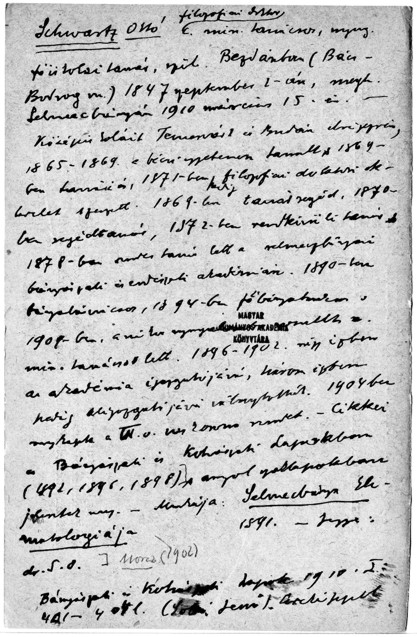 filozofiai doktor
Schwartz Ottó, k. min. tanácsos, nyug.
főiskolai tanár, szül. Bezdánban (Bács-
Bodrog vm.) 1847 szeptember 2-án, megh.
Selmecbányán 1910 március 15.-én. —
Középiskoláit Temesvárt és Budán végezte,
1865-1869. a bécsi egyetemen tanult, 1869-
ben tanári, 1871-ben filozofiai doktori ok-
levelet szerzett. 1869-ben tanársegéd, 1870-
ben segédtanár, 1872-ben rendkívüli tanár,
1878-ban rendes tanár lett a selmecbányai
bányászati és erdészeti akadémián. 1890-ben
bányatanácsos, 1894-ben főbányatanácsos
1909-ben, amikor nyugalomba vonult,
min. tanácsos lett. 1896-1902. négy ízben
az akadémia igazgatójává, három ízben
pedig aligazgatójává választották. 1904-ben
megkapta a III. o. vaskorona rendet. — Cikkei
a Bányászati és Kohászati Lapokban
(1892, 1896, 1898), angol szaklapokban
jelentek meg. — Munkája: Selmecbánya Kli-
matologiája 1891. —
dr. S. O. ] (1902)
Bányászati és Kohászati Lapok 1910. I.
401-404 l.
MAGYAR
TUDOMÁNYOS AKADÉMIA
KÖNYVTÁRA